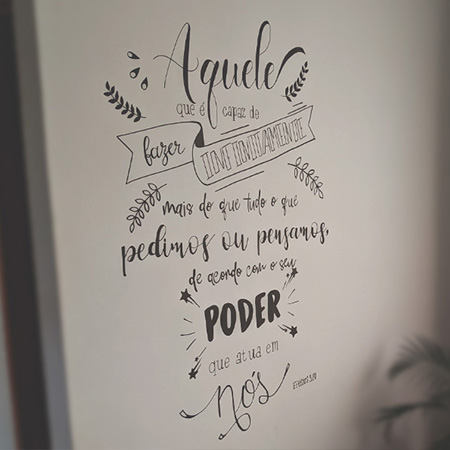 Aquele
que é capaz de
fazer INFINITAMENTE
mais do que tudo o que
pedimos ou pensamos,
de acordo com o seu
PODER
que atua em
nós